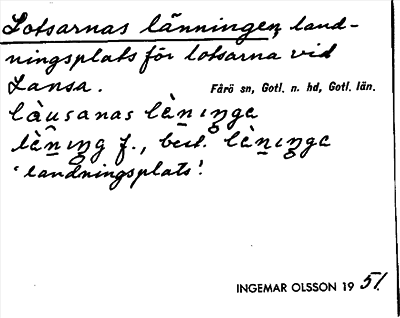 Lotsarnas länningen, land-
ningsplats för lotsarna vid
Lansa.
Fårö sn, Gotl. n. hd, Gotl. län.
làusanas lènıŋge
lènıŋg f., best. lènıŋge
'landningsplats'.
INGEMAR OLSSON 19 51.